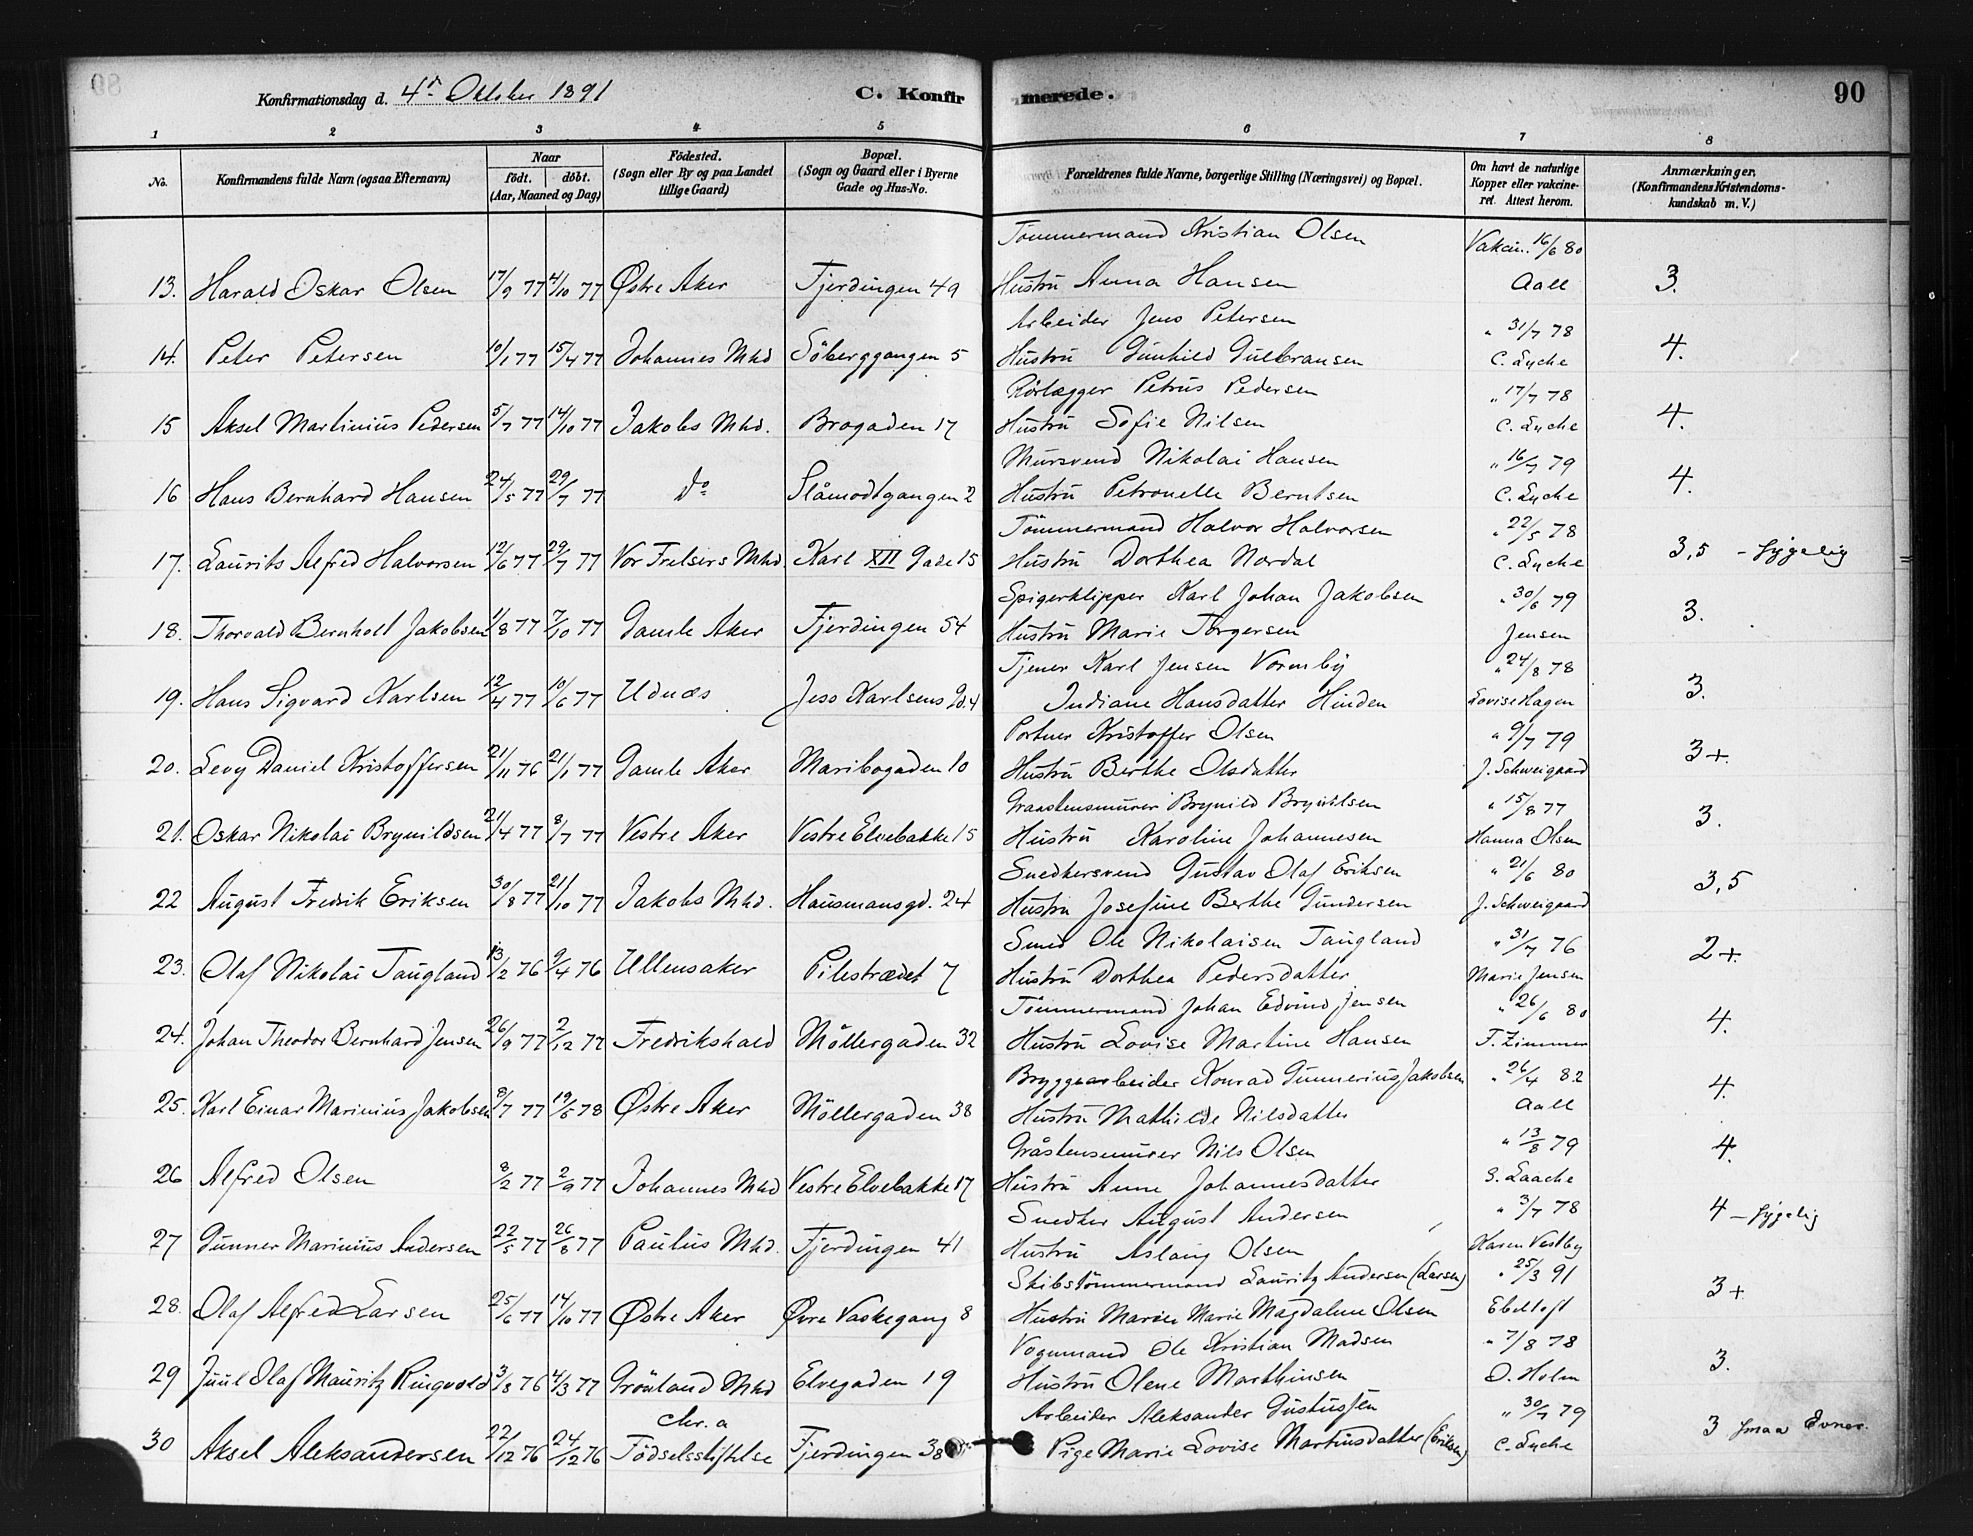 Konfirmationsdag d. 4de Oktober 1891 C. Konfirmerede. 90
1 2 3 4 5 6 7 8
No. Konfirmandens fulde Navn (ogsaa Efternavn) Naar födt. döbt. (Aar, Maaned og Dag) Födested. (Sogn eller By og paa Landet tillige Gaard) Bopæl. (Sogn og Gaard eller i Byerne Gade og Hus-No. Forældrenes fulde Navne, borgerlige Stilling (Næringsvei) og Bopæl. Om havt de naturlige Kopper eller vakcineret. Attest herom. Anmærkninger, (Konfirmandens Kristendomskundskab m. V.)
Tömmermand Kristian Olsen Vakcin. 16/6 80
13. Harald Oskar Olsen 17/9 77 4/10 77 Østre Aker Fjerdingen 49 Hustru Anna Hansen Aall 3.
Arbeider Jens Petersen " 31/7 78
14. Peter Petersen 10/1 77 15/4 77 Johannes Mhd Söberggangen 5 Hustru Gunhild Gulbransen C. Lyche 4.
Rörlægger Petrus Pedersen " 17/7 78
15 Aksel Martinius Pedersen 5/7 77 14/10 77 Jakobs Mhd. Brogaden 17 Hustru Sofie Nilsen C. Lyche 4.
Mursvend Nikolai Hansen " 16/7 79
16 Hans Bernhard Hansen 24/5 77 29/7 77 do Slåmodtgangen 2 Hustru Petronelle Berntsen C. Lyche 4.
Tömmermand Halvor Halvorsen " 22/5 78
17. Laurits Alfred Halvorsen 12/6 77 29/7 77 Vor Frelsers Mhd. Karl XII Gade 15 Hustru Dorthea Nordal C. Lyche 3,5 - sygelig
Spigerklipper Karl Johan Jakobsen " 30/6 79
18. Thorvald Bernholt Jakobsen 1/8 77 7/10 77 Gamle Aker Fjerdingen 54 Hustru Marie Torgersen Jensen 3.
Tjener Karl Jensen Vormby " 24/8 78
19. Hans Sigvard Karlsen 12/4 77 10/6 77 Udnæs Jess Karlsens Gd. 4 Indiane Hansdatter Hinden Lovise Hagen 3.
Portner Kristoffer Olsen " 9/7 79
20. Levy Daniel Kristoffersen 21/11 76 21/1 77 Gamle Aker Maribogaden 10 Hustru Berthe Olsdatter J. Schweigaard 3+
Graastensmurer Brynild Brynildsen " 15/8 77
21. Oskar Nikolai Brynildsen 21/4 77 8/7 77 Vestre Aker Vestre Elvebakke 15 Hustru Karoline Johannesen Hanna Olsen 3.
Snedkersvend Gustav Olaf Eriksen " 21/6 80
22 August Fredrik Eriksen 30/8 77 21/10 77 Jakobs Mhd. Hausmansgd. 24 Hustru Josefine Berthe Gundersen J. Schweigaard 3,5
Smed Ole Nikolaisen Taugland " 31/7 76
23. Olaf Nikolai Taugland 13/2 76 9/4 76 Ullensaker Pilestrædet 7 Hustru Dorthea Pedersdatter Marie Jensen 2+
Tömmermand Johan Edvind Jensen " 26/6 80
24. Johan Theodor Bernhard Jensen 26/9 77 2/12 77 Fredrikshald Möllergaden 32 Hustru Lovise Martine Hansen F. Zimmer 4.
Bryggearbeider Konrad Gunnerius Jakobsen " 26/4 82
25. Karl Einar Marinius Jakobsen 8/7 77 19/5 78 Østre Aker Möllergaden 38 Hustru Mathilde Nilsdatter Aall 4.
Gråstensmurer Nils Olsen " 13/8 79
26 Alfred Olsen 8/2 77 2/9 77 Johannes Mhd Vestre Elvebakke 17 Hustru Anne Johannesdatter S. Laache 4.
Snedker August Andersen " 3/7 78
27 Gunner Marinius Andersen 22/5 77 26/8 77 Paulus Mhd. Fjerdingen 41 Hustru Aslaug Olsen Karen Vestby 4 - sygelig
Skibstömmermand Lauritz Andersen (Larsen) " 25/3 91
28. Olaf Alfred Larsen 25/6 77 14/10 77 Østre Aker Øvre Vaskegang 8 Hustru Maren Marie Magdalene Olsen Ebeltoft 3+
Vognmand Ole Kristian Madsen " 7/8 78
29 Juul Olaf Mauritz Ringvold 3/8 76 4/3 77 Grönland Mhd Elvegaden 19 Hustru Olene Marthinsen O. Holm 3.
Chr.a Arbeider Aleksander Gustussen " 30/7 79
30 Aksel Aleksandersen 22/12 76 24/12 76 Födselsstiftelse Fjerdingen 38 Pige Marie Lovise Martinsdatter (Eriksen) C. Lyche 3 smaa Evner.